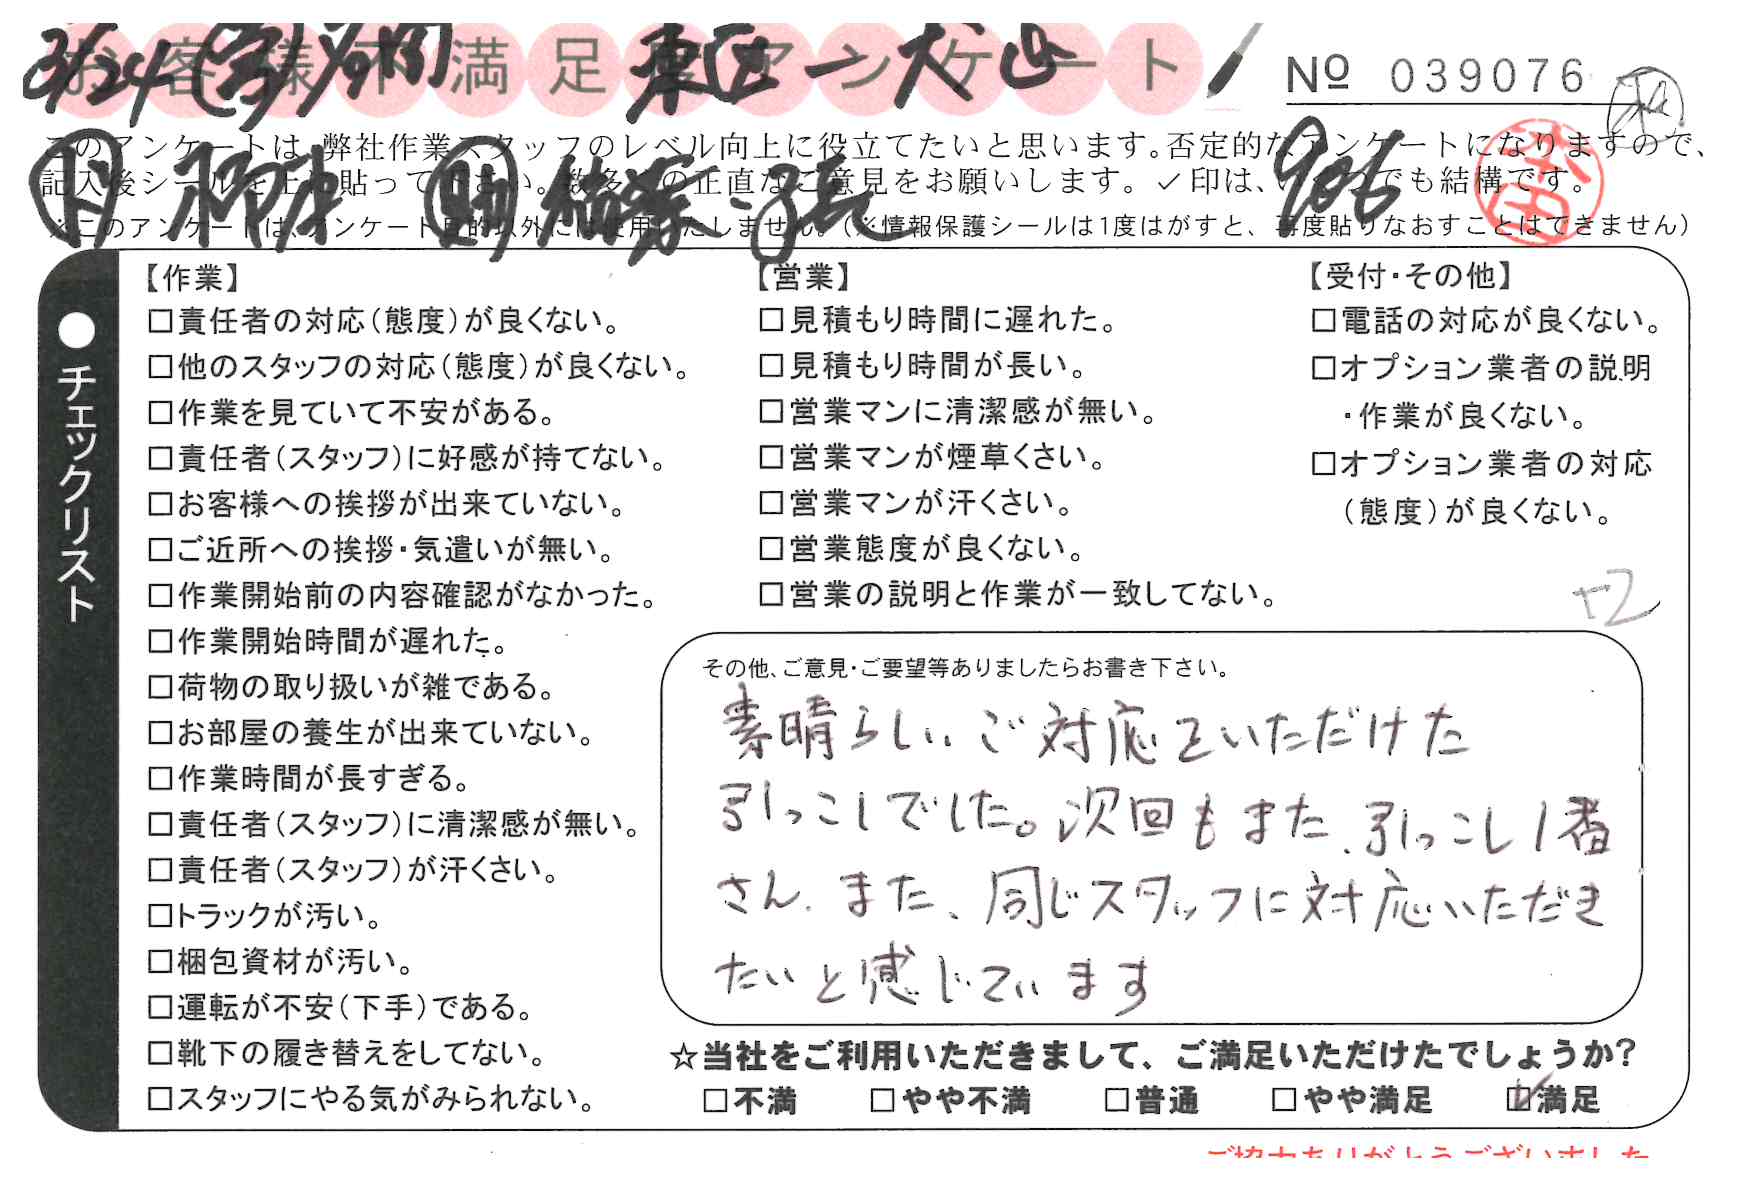 お客様不満足度アンケート
3/24
東区 ー 犬山
Nº 039076
このアンケートは、弊社作業スタッフのレベル向上に役立てたいと思います。否定的なアンケートになりますので、
記入後シールを上に貼って下さい。数多くの正直なご意見をお願いします。✓印は、いくつでも結構です。
※このアンケートは、アンケート目的以外には使用いたしません。（※情報保護シールは1度はがすと、再度貼りなおすことはできません）
●チェックリスト
【作業】
□責任者の対応（態度）が良くない。
□他のスタッフの対応（態度）が良くない。
□作業を見ていて不安がある。
□責任者（スタッフ）に好感が持てない。
□お客様への挨拶が出来ていない。
□ご近所への挨拶・気遣いが無い。
□作業開始前の内容確認がなかった。
□作業開始時間が遅れた。
□荷物の取り扱いが雑である。
□お部屋の養生が出来ていない。
□作業時間が長すぎる。
□責任者（スタッフ）に清潔感が無い。
□責任者（スタッフ）が汗くさい。
□トラックが汚い。
□梱包資材が汚い。
□運転が不安（下手）である。
□靴下の履き替えをしてない。
□スタッフにやる気がみられない。
【営業】
□見積もり時間に遅れた。
□見積もり時間が長い。
□営業マンに清潔感が無い。
□営業マンが煙草くさい。
□営業マンが汗くさい。
□営業態度が良くない。
□営業の説明と作業が一致してない。
【受付・その他】
□電話の対応が良くない。
□オプション業者の説明
・作業が良くない。
□オプション業者の対応
（態度）が良くない。
+2
その他、ご意見・ご要望等ありましたらお書き下さい。
素晴らしいご対応をいただけた
引っこしでした。次回もまた、引っこし1番
さん、また、同じスタッフに対応いただき
たいと感じています
☆当社をご利用いただきまして、ご満足いただけたでしょうか？
□不満 □やや不満 □普通 □やや満足 ☑満足
ご協力ありがとうございました